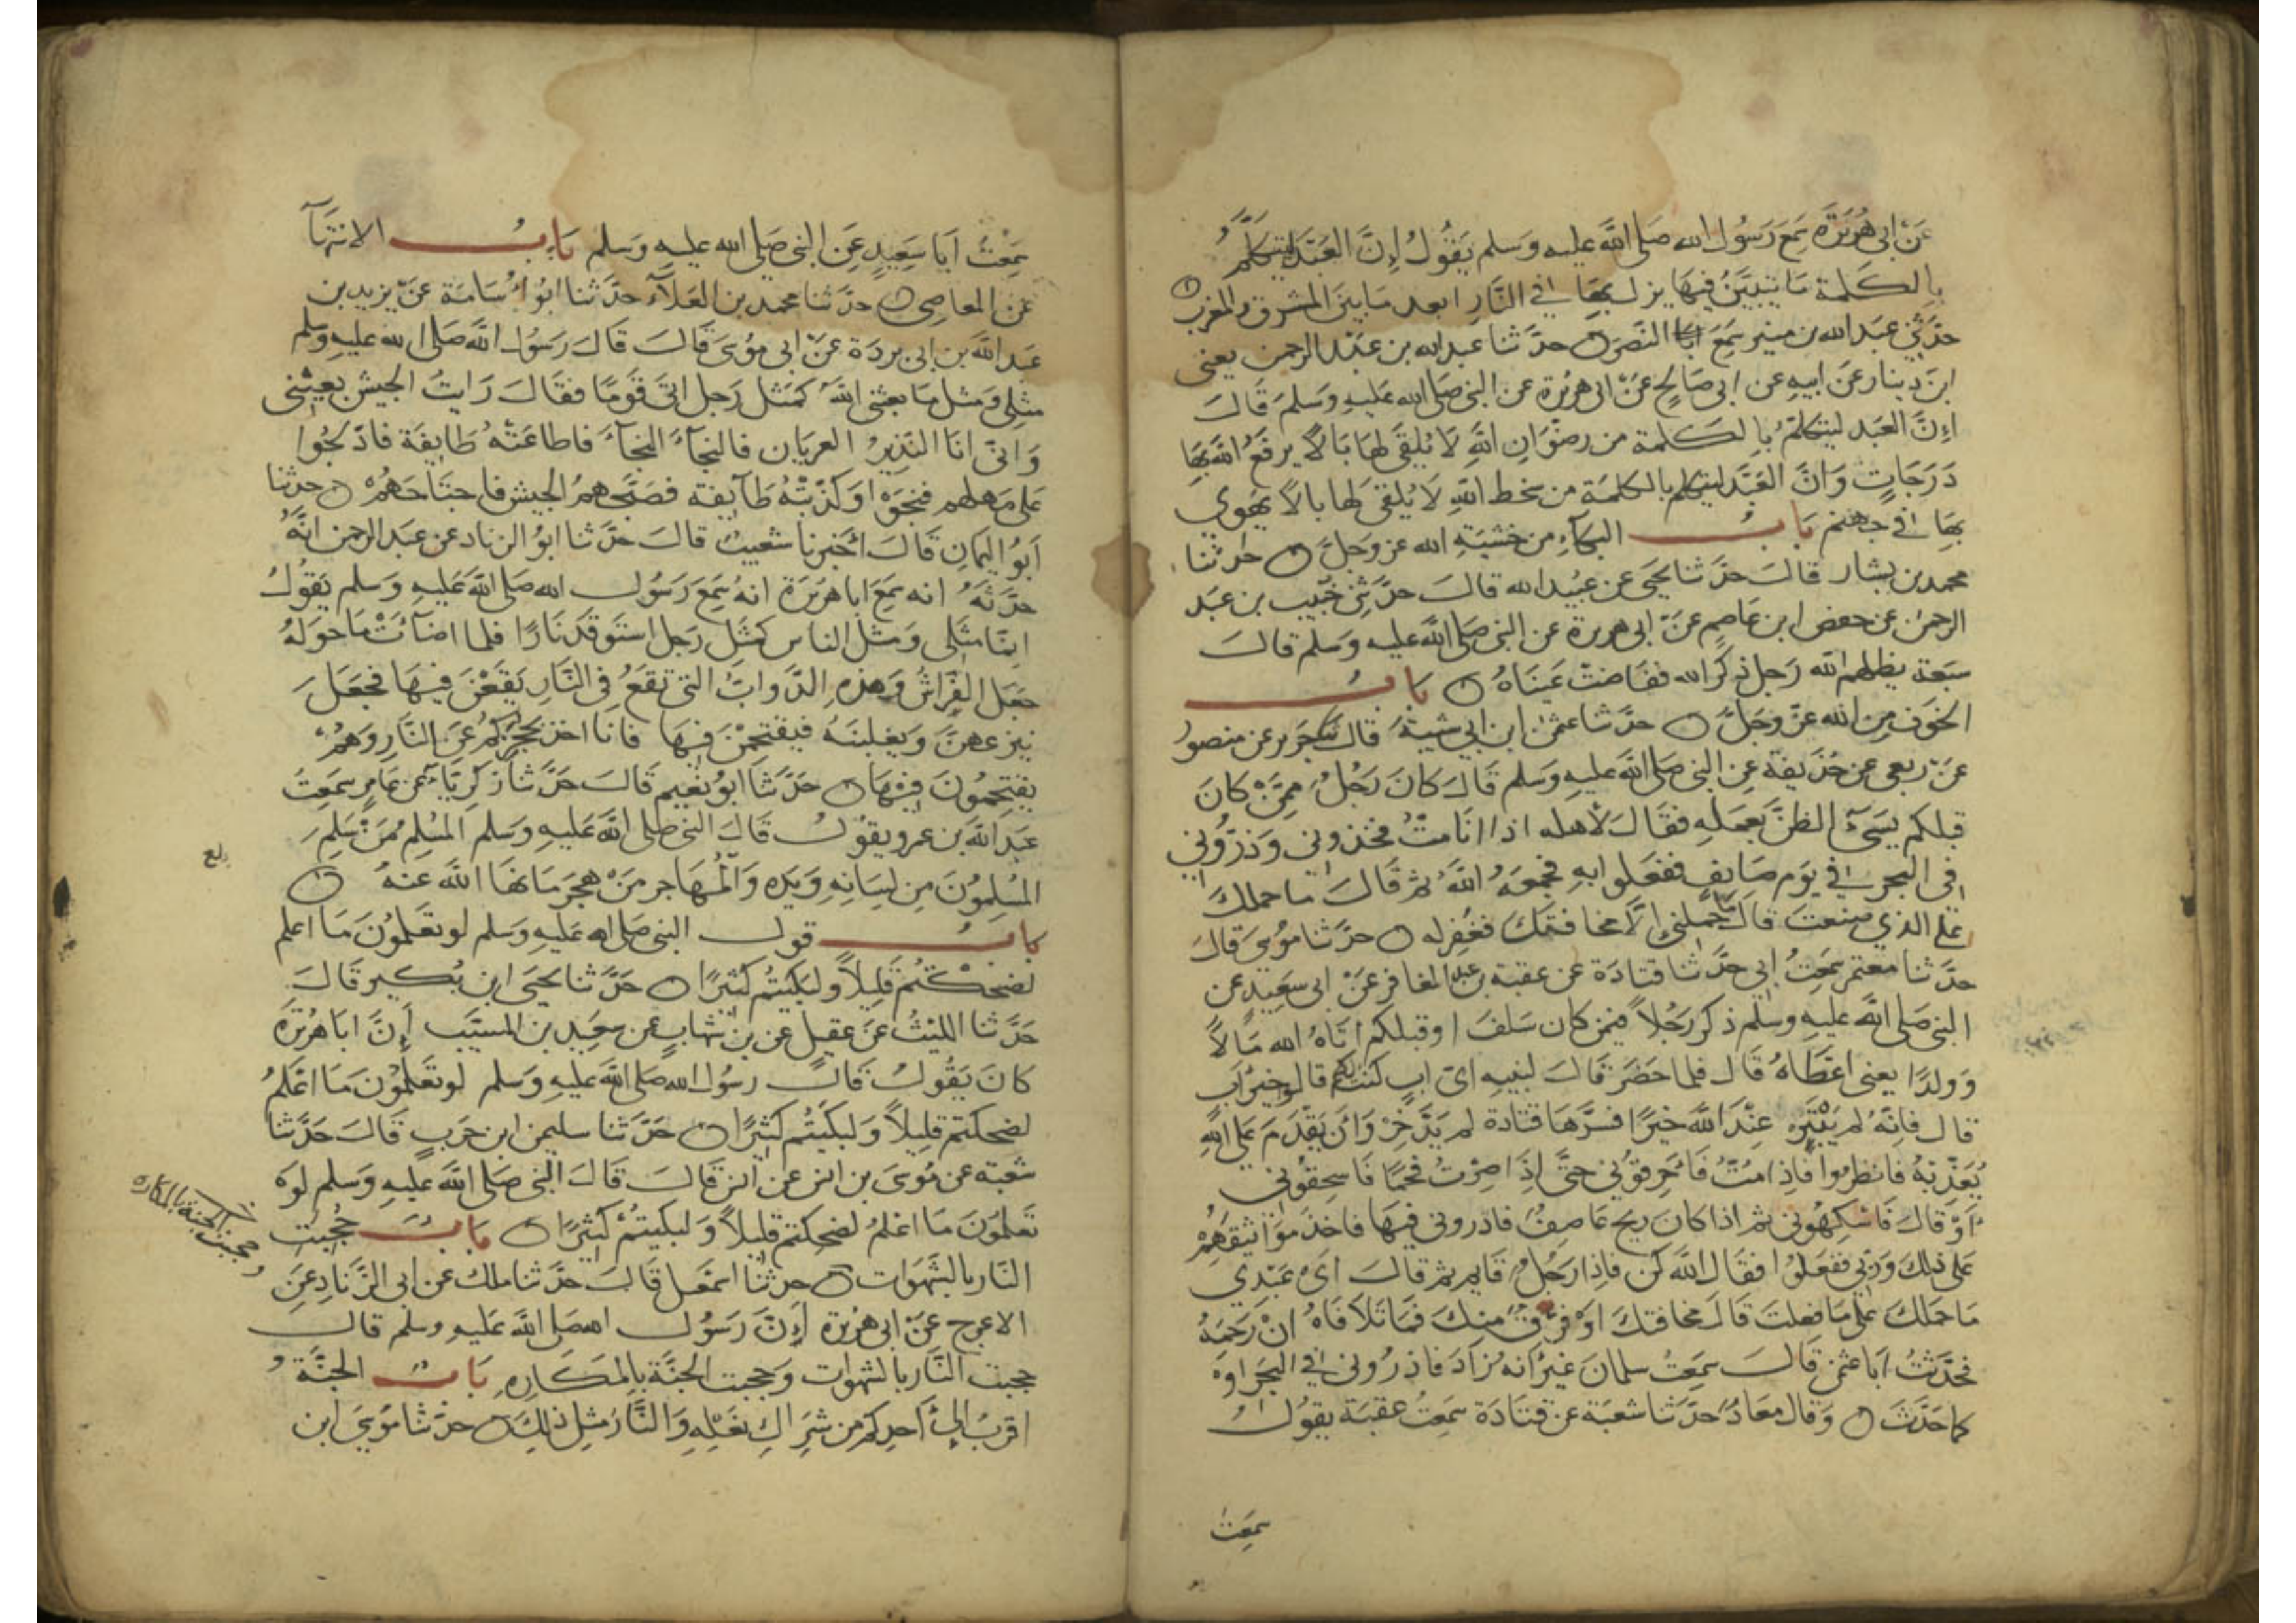 عَنْ ابى هُرَيْرَةَ سَمِعَ رَسُولَ الله صَلى اللَّه عليه وَسَلم يَقُولُ اِنَّ العَبْدَ ليتكلَّمُ
بالكَلمة مَا يتبَيَّنُ فيهَا يزلُ بهَا فى النَّارِ ابعد مَا بينَ المشرق والمغرب
حدَّثنى عَبد الله بن منير سَمِعَ ابا النَّضر حدَّثنا عبد الله بن عَبْد الرحمن يعنى
ابنَ دِينار عَنَ ابيهِ عن ابى صَالحٍ عَنْ ابى هُرَيْرَة عن النبى صَلى الله عَليهِ وَسَلمَ قَالَ
اِنَّ العَبد ليتكلمُ بالكَلمة من رضوَانِ اللَّهِ لَا يُلقى لهَا بَالًا يرفَعُ اللَّه بِهَا
دَرَجَاتٍ وَانَّ العَبْدَ ليتكلم بالكلمَة من سَخط اللَّهِ لَا يُلقى لَها بالًا يَهْوِي
بهَا فى جهنم بَابُ البكآءِ من خشيَةِ الله عز وَجَلَّ حدثنا
محمد بن بشار قالَ حدَّثنا يَحيى عن عبيد الله قالَ حدَّثنى خُبَيب بن عَبد
الرحمن عن حفص ابن عَاصِم عَنْ ابى هريرة عن النبى صَلى اللَّه عليه وَسَلم قالَ
سَبعَة يظلهم الله رَجل ذكَرَ الله ففَاضتْ عَينَاهُ بَابُ
الخَوف مِنَ الله عَزّ وَجَلَّ حدَّثنا عثمٰن ابن ابى شيبَةَ قال ثنا جَرير عن منصور
عَنْ ربعى عن حُذَيفة عن النبى صَلى اللَّه عَليهِ وسَلم قَالَ كانَ رَجُلٌ مِمَّنْ كانَ
قبلكم يُسِىٓءُ الظنَّ بعَمَلِهِ فقَالَ لأهله اذا انَا متُّ فخذونى وَذَرُّونى
فى البحر فى يوَم صَائِف ففعَلوا بهِ فجمعَهُ اللَّهُ ثم قَالَ ما حملكَ
عَلى الذي صنعتَ قالَ مَا حَملنى اِلَّا مخافتكَ فغُفِر له حدَّثنا مُوسَى قالَ
حدَّثنا معتمر سَمِعتُ ابى حدَّثنا قتادَة عن عقبة بن عبد الغافر عَنْ ابى سعَيِد عن
النبى صَلى اللَّه عليهِ وسَلم ذكر رَجُلًا فيمن كان سَلفَ او قبلكم اتَاهُ الله مَالًا
وَولدًا يعنى اعَطَاهُ قَال فلما حَضَر قَالَ لبنيهِ اىَّ اب كنتُ لكم قالوا خيرَ اب
قال فَانَّهُ لم يَبْتَئِرْ عِنْدَ اللَّه خَيرًا فسَّرَهَا قتَادة لم يَدَّخِرْ وَانْ يَقْدَمَ عَلى اللَّهِ
يُعَذِّبْهُ فانظرُوا فَاذِا مُتُّ فَاَحْرِقُوْنى حتَّى اِذَا صِرْتُ فَحْمًا فَاسحقُوْنى
اَوْ قَالَ فَاسْهكُوْنى ثم اذا كان ريح عَاصِفٌ فاذرونى فيهَا فاخَذَ موَاثيقَهُمْ
عَلى ذلكَ وَرَبّى ففعَلُوا فقَالَ اللَّه كُن فاِذا رَجُلٌ قَايم ثم قالَ اَىْ عَبْدِي
مَا حَمَلكَ عَلى مَا فعلتَ قَالَ مخافتكَ اوَ فرَقٌ منكَ فَمَا تَلَافَاهُ انْ رَحِمَهُ
فحدَّثتُ ابَا عثمٰن قَالَ سَمِعتُ سلمانَ غيرَ انه زَادَ فاذرُونى فى البَحر اوَ
كما حَدَّثَ وَقال معَاذ حَدَّثنا شعبَة عَن قتَادَة سَمِعَتُ عقبَة يقوُل
سمِعَت
سَمِعْتُ اَبَا سَعِيدٍ عَن النبى صَلى الله عليهِ وَسَلم بَابُ الانتهَآ
عَن المعاصِى حدَّثنا محمد بن العَلَآء حدَّثنا ابُو اُسَامَة عَن يزيد بن
عَبد اللَّه بن ابى بردَة عَنْ ابى مُوسَى قَالَ قَالَ رَسُوُل اللَّه صَلى الله عَليهِ وَسلم
مثلى وَمثل مَا بعثنى اللَّهُ كمَثل رَجل اتَى قوَمًا فقَالَ رَايتُ الجيش بعينى
وَانّى انَا النَّذِيرُ العريَان فالنجآءَ النجآءَ فاطاعَتْهُ طَايفَة فادّلَجُوا
عَلى مَهلهم فنجَوْا وَكذَّبَتْهُ طَآيفة فصَبَّحهمُ الجيش فاجتَاحَهُمْ حدثنا
اَبُو اليمَانِ قَالَ اَخبَرنا شعَيبٌ قالَ حَدَّثنا ابوُ الزناد عن عَبد الرحمن انَّهُ
حدَّثَهُ انه سَمِعَ ابا هُرَيْرَة انهُ سَمِعَ رَسُول الله صَلى اللَّه عَليهِ وَسلم يَقوُلُ
اِنّمَا مثَلى وَمثَل النَاس كمثَلِ رَجل استَوقدَ نَارًا فلما اضآءَتْ مَا حَولهُ
جعَل الفَرَاشُ وَهذه الدَّوابُّ التى تقعُ فى النَّارِ يَقَعْنَ فيهَا فجَعَلَ
ينزعهنَّ وَيغلبنَهُ فيقتَحِمْنَ فيهَا فانَا اخذ بحُجَزِكُمْ عَن النَّارِ وَهُمْ
يقتحِمُونَ فيْهَا حَدَّثنَا ابُو نُعَيم قَالَ حَدَّثنَا زكريَّآءُ عَن عَامِر سَمِعَتُ
عَبدَ اللَّه بن عمرو يقوُلُ قَالَ النبى صَلى اللَّه عَليهِ وَسَلم المُسْلِمُ مَنْ سَلِمَ
المُسْلِمُونَ مِن لِسَانِهِ وَيَدِه وَالمُهَاجر مَنْ هَجَرَ مَا نهَا اللَّه عَنهُ
بَابُ قول النبى صَلى الله عَليهِ وَسَلم لو تعَلمُونَ مَا اعلم
لضحكْتُم قَليلًا وَلبَكيتُم كثيرًا حَدَّثنا يَحيَى ابن بُكير قالَ
حَدَّثنا الليْثُ عَنَ عقيل عن بن شهابٍ عن سعيَد بن المسيّب اَنَّ ابا هُرَيْرَة
كانَ يَقُولُ قالَ رسُوُل الله صَلى اللَّه عَليهِ وَسلم لو تَعلمُوْنَ مَا اعَلمُ
لضحكتم قليلًا وَلبكيتُم كثيرًا حَدَّثنا سليمٰن ابن حَربٍ قَالَ حَدَّثنا
شعبة عن مُوسَى بن انس عن انس قَالَ قَالَ النبى صَلى اللَّه عليهِ وَسَلم لَو
تَعلمُونَ مَا اعْلمُ لضَحِكتم قَليلًا وَلبكيتُمْ كثيرًا بَابُ حُجبت
النَّار بالشَّهَوات حدثنا اسمٰعيل قَالَ حدَّثنا ملك عن ابى الزّنادِ عَنِ
الاعرج عَنْ ابى هُرَيْرة اَنَّ رَسُوُل الله صَلى اللَّه عَليهِ وسَلم قال
حجبت النَّار بالشهوات وَحجبت الجنَّة بالمكَارِه بَابُ الجنَّة
اقربُ الى اَحدِكم من شِرَاكِ نَعْلِهِ وَالنَّار مثل ذلِكَ حدَّثنا مُوسَى ابن
وحجبت الجنة بالمكاره